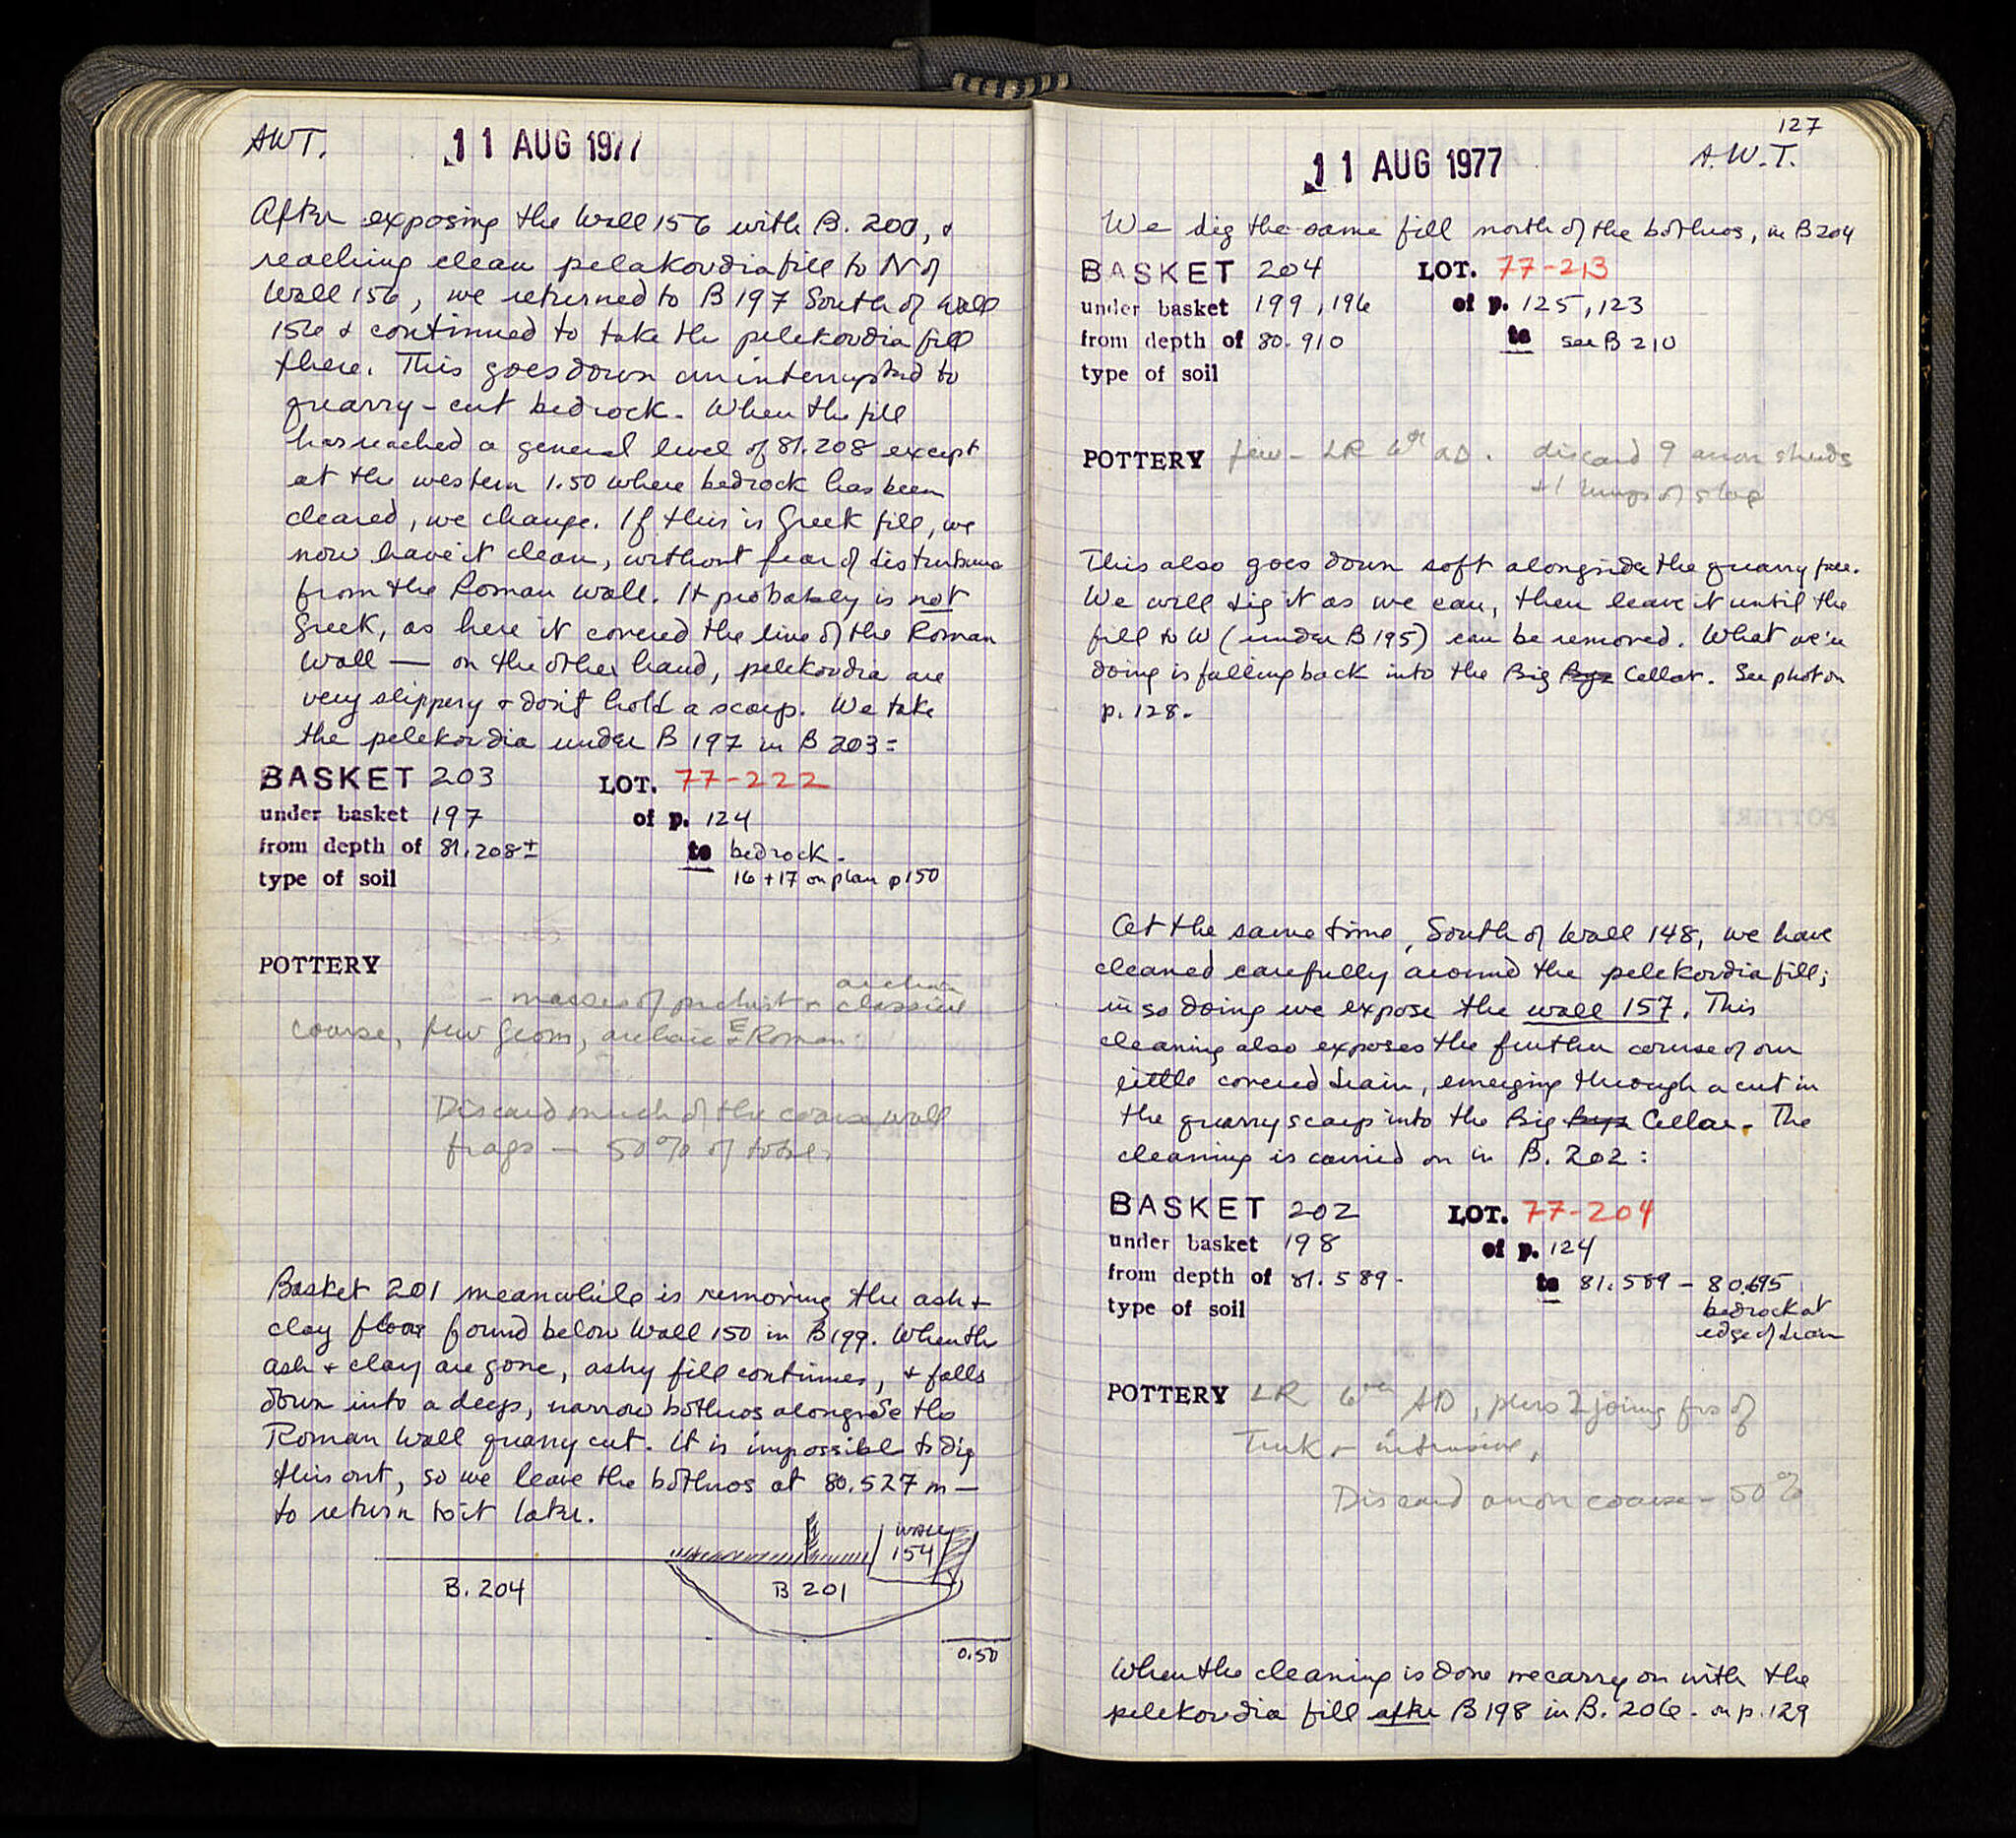 AWT.
11 AUG 1977
After exposing the Wall 156 with B. 200, +
reaching clean pelakoudia fill to N of
Wall 156, we returned to B 197 South of Wall
156 + continued to take the pelekoudia fill
there. This goes down uninterrupted to
quarry-cut bedrock. When the fill
has reached a general level of 81.208 except
at the western 1.50 where bedrock has been
cleared, we change. If this is Greek fill, we
now have it clean, without fear of disturbance
from the Roman wall. It probably is not
Greek, as here it covered the line of the Roman
Wall — on the other hand, pelekoudia are
very slippery + don't hold a scarp. We take
the pelekoudia under B 197 in B 203:
BASKET 203 LOT. 77-222
under basket 197 of p. 124
from depth of 81.208± to bedrock.
type of soil 16 + 17 on plan p150
POTTERY
archaic
- masses of prehist + classical
coarse, few Geom, archaic + E Roman.
Discard much of the coarse wall
frags — 50% of total.
Basket 201 meanwhile is removing the ash +
clay floor found below Wall 150 in B199. When the
ash + clay are gone, ashy fill continues, + falls
down into a deep, narrow bothros alongside the
Roman Wall quarry cut. It is impossible to dig
this out, so we leave the bothros at 80.527 m —
to return to it later.
WALL
154
B. 204 B 201
0.50
127
11 AUG 1977 A.W.T.
We dig the same fill north of the bothros, in B204
BASKET 204 LOT. 77-213
under basket 199, 196 of p. 125, 123
from depth of 80.910 to see B 210
type of soil
POTTERY few - LR 6th AD. discard 9 anon sherds
+1 lump of slag
This also goes down soft alongside the quarry face.
We will dig it as we can, then leave it until the
fill to W (under B195) can be removed. What we're
doing is falling back into the Big Byz Cellar. See photo on
p. 128.
At the same time, South of Wall 148, we have
cleaned carefully around the pelekoudia fill;
in so doing we expose the wall 157. This
cleaning also exposes the further course of our
little covered drain, emerging through a cut in
the quarry scarp into the Big Byz Cellar. The
cleaning is carried on in B. 202:
BASKET 202 LOT. 77-204
under basket 198 of p. 124
from depth of 81.589- to 81.589 - 80.695
type of soil bedrock at
edge of drain
POTTERY LR 6th AD, plus 2 joining frs of
Turk - intrusive,
Discard anon coarse - 50%
When the cleaning is done we carry on with the
pelekoudia fill after B198 in B. 206 - on p. 129